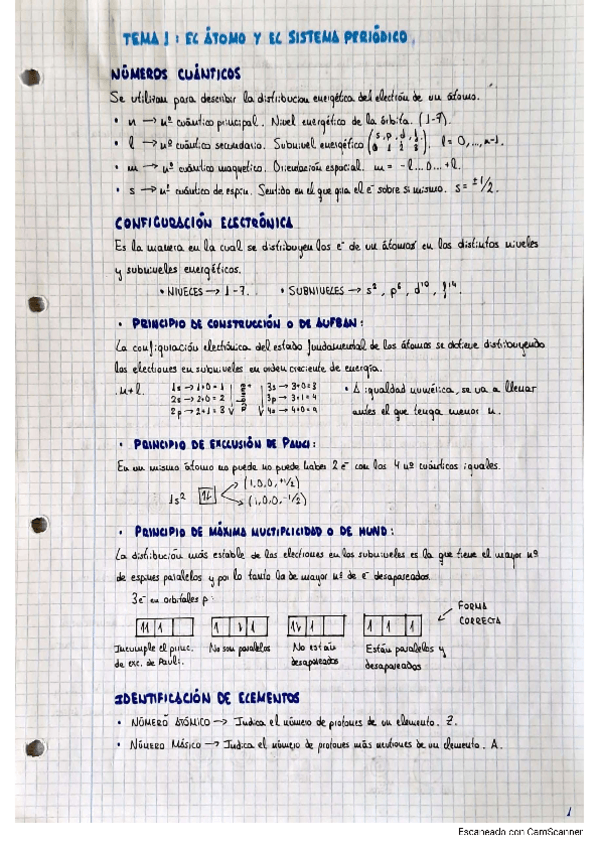 TEMA 1: EL ÁTOMO Y EL SISTEMA PERIÓDICO.
NÚMEROS CUÁNTICOS
Se utilizan para describir la distribucion energética del electrón de un átomo.
• n → nº cuántico principal. Nivel energético de la órbita. (1-7).
• l → nº cuántico secundario. Subnivel energético (s, p, d, f / 0 1 2 3). l = 0, ..., n-1.
• m → nº cuántico magnetico. Orientación espacial. m = -l...0...+l.
• s → nº cuántico de espín. Sentido en el que gira el e⁻ sobre si mismo. s = ±1/2.
CONFIGURACIÓN ELECTRÓNICA
Es la manera en la cual se distribuyen los e⁻ de un átomos en los distintos niveles
y subniveles energéticos.
• NIVELES → 1-7. • SUBNIVELES → s², p⁶, d¹⁰, f¹⁴.
• PRINCIPIO DE CONSTRUCCIÓN O DE AUFBAN:
La configuración electrónica del estado fundamental de los átomos se obtiene distribuyendo
los electrones en subniveles en orden creciente de energía.
n+l. 1s → 1+0=1 3s → 3+0=3 • A igualdad numérica, se va a llenar
2s → 2+0=2 3p → 3+1=4 antes el que tenga menor n.
2p → 2+1=3 4s → 4+0=4
• PRINCIPIO DE EXCLUSIÓN DE PAULI:
En un mismo átomo no puede no puede haber 2 e⁻ con los 4 nº cuánticos iguales.
1s² [1l] (1,0,0,+1/2)
(1,0,0,-1/2)
• PRINCIPIO DE MÁXIMA MULTIPLICIDAD O DE HUND:
La distribución más estable de los electrones en los subniveles es la que tiene el mayor nº
de espines paralelos y por lo tanto la de mayor nº de e⁻ desapareados.
3e⁻ en orbitales p:
FORMA
CORRECTA
Incumple el princ. No son paralelos No están Están paralelos y
de exc. de Pauli. desapareados desapareados
IDENTIFICACIÓN DE ELEMENTOS
• NÚMERO ATÓMICO → Indica el número de protones de un elemento. Z.
• NÚMERO MÁSICO → Indica el número de protones más neutrones de un elemento. A.
1
Escaneado con CamScanner